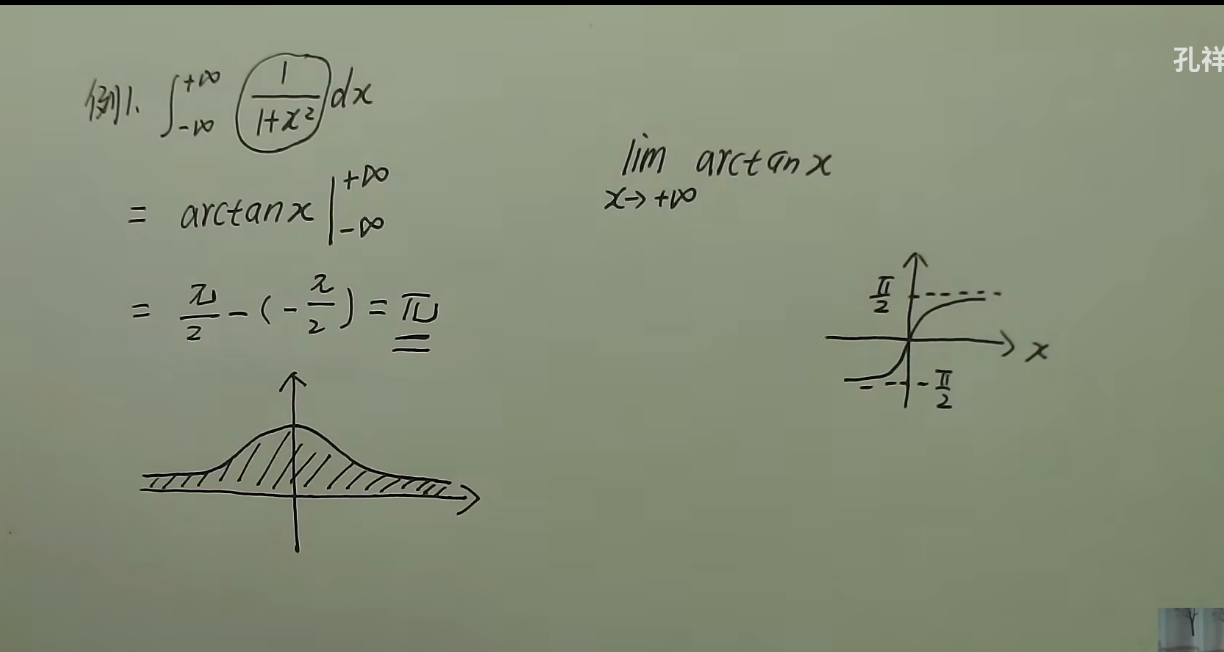 例1. ∫_{-∞}^{+∞} 1/(1+x²) dx
= arctanx |_{-∞}^{+∞}
= π/2 - (-π/2) = π
lim_{x→+∞} arctanx
π/2
x
-π/2
孔祥